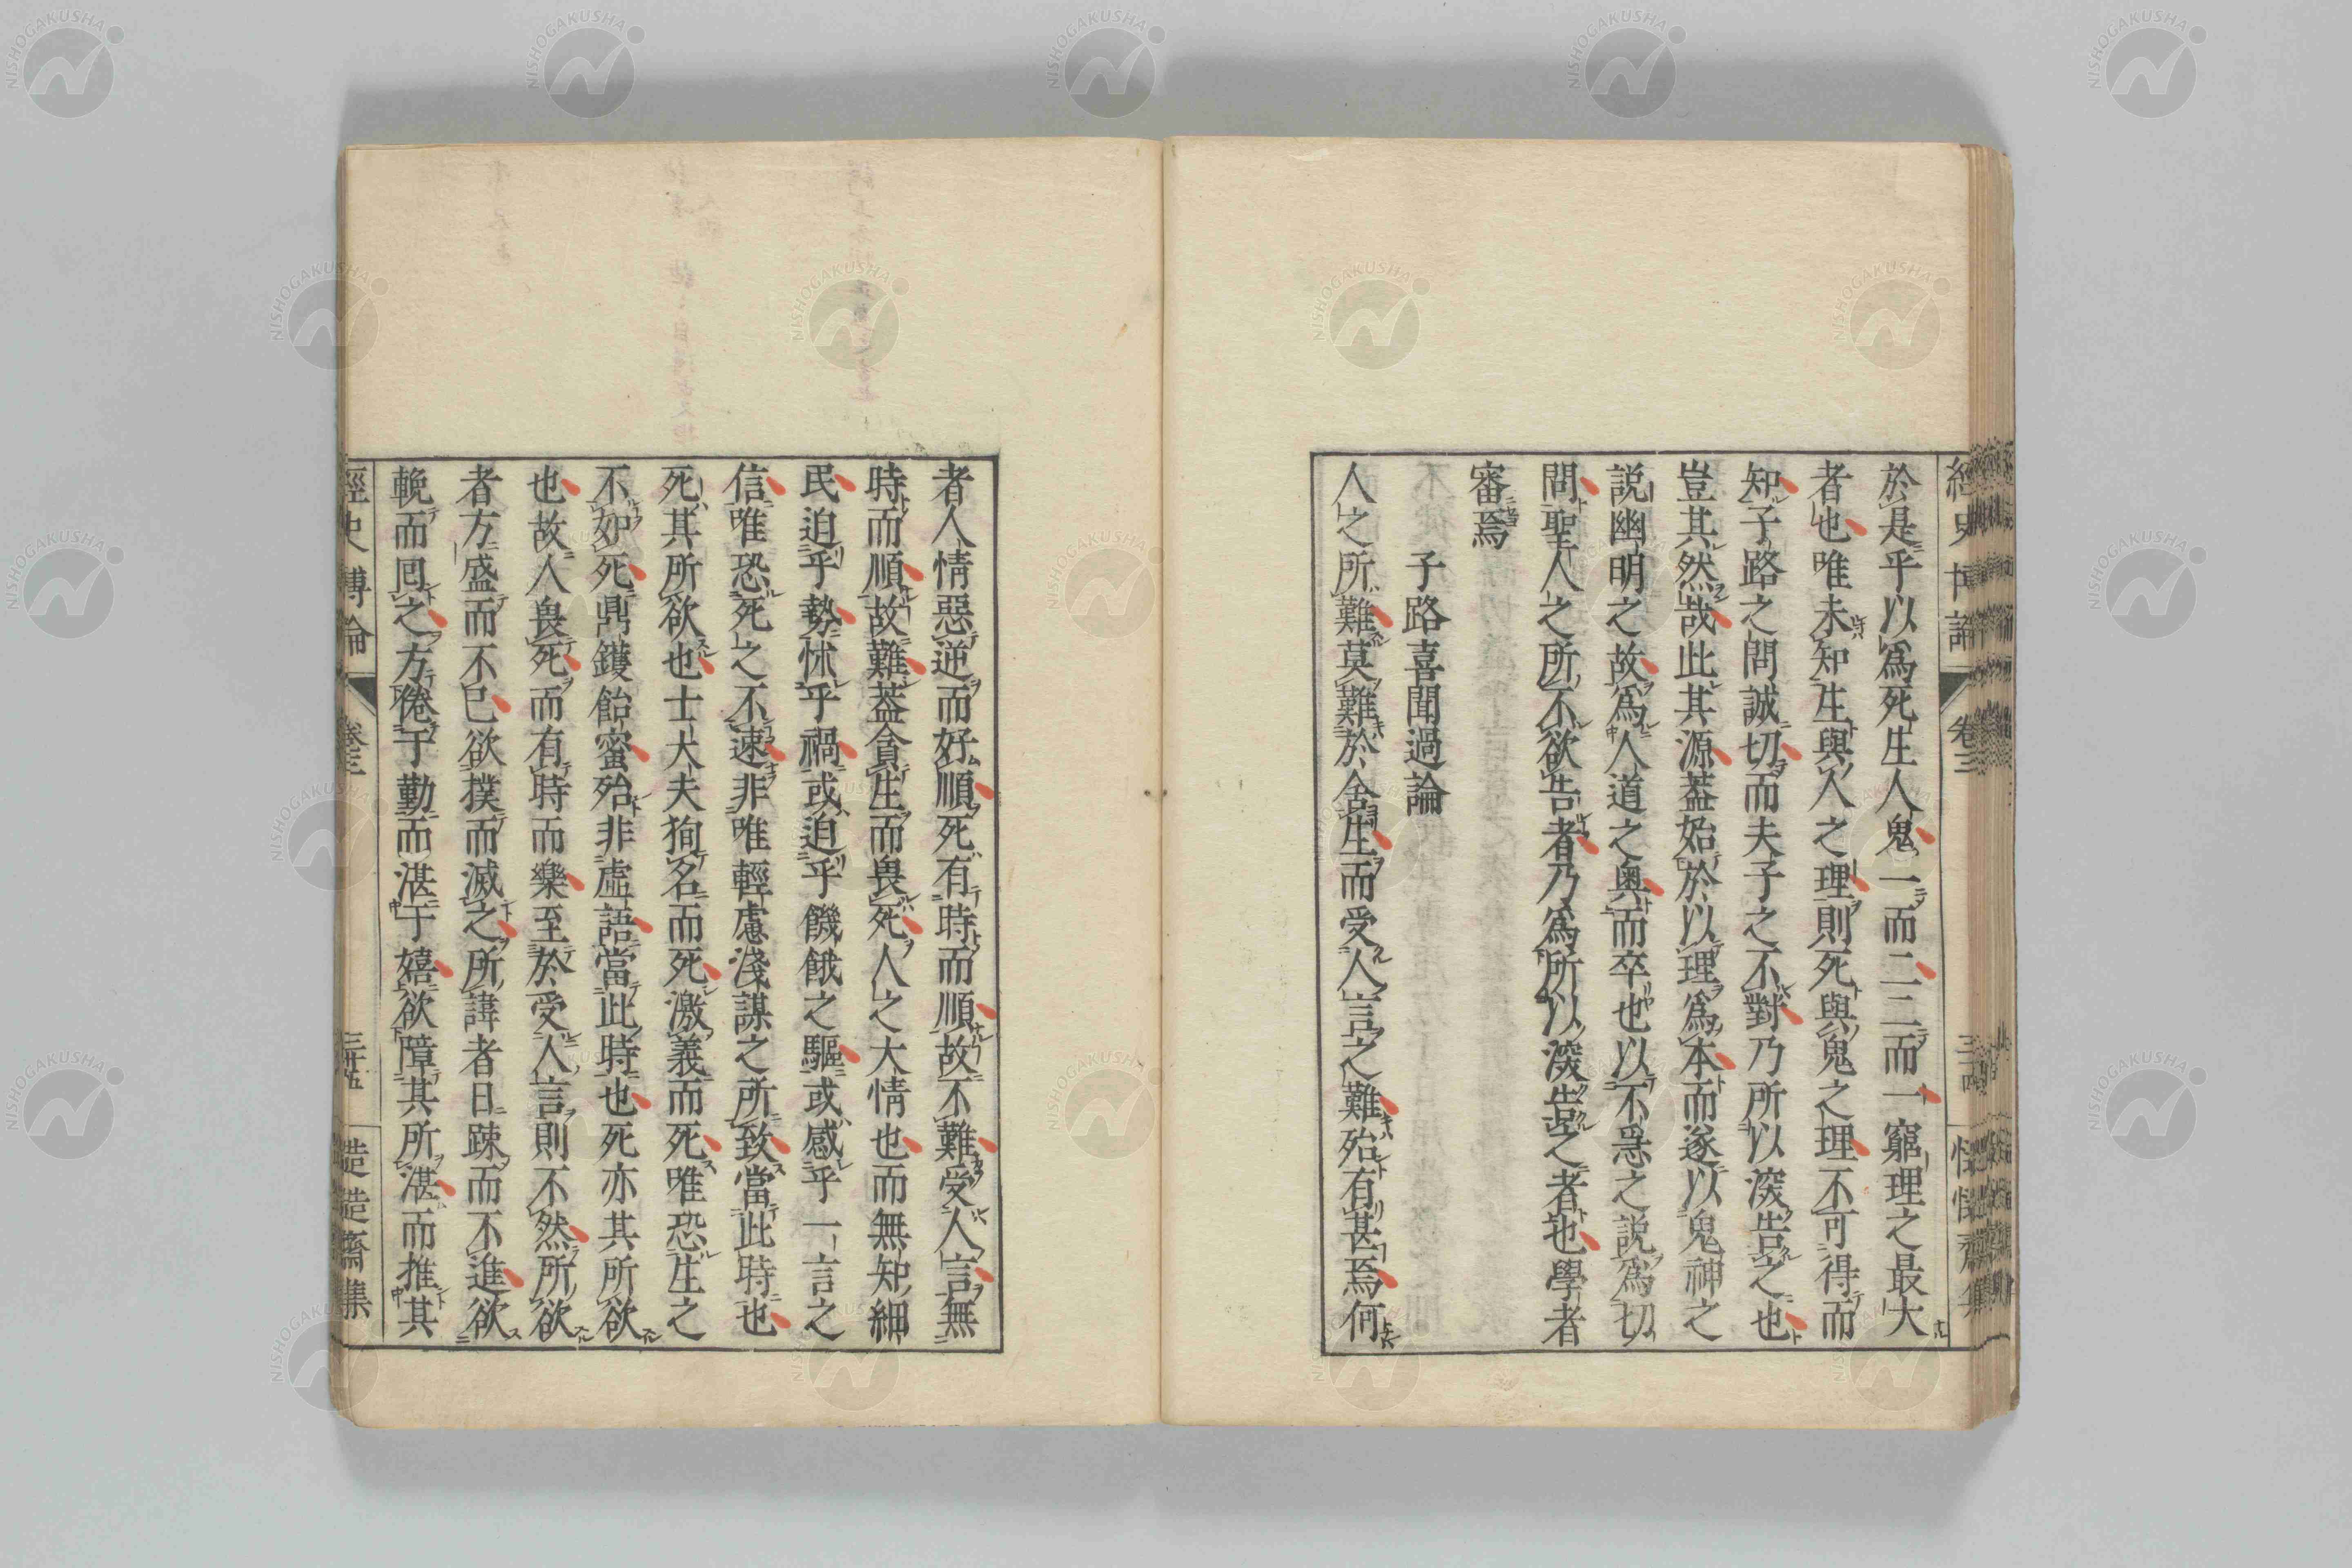 於是乎以爲死生人鬼一而二二而一窮理之最大
者也唯未知生與人之理則死與鬼之理不可得而
知子路之問誠切而夫子之不對乃所以深告之也
豈其然哉此其源蓋始於以理爲本而遂以鬼神之
説幽明之故爲人道之奧而卒也以不急之説爲切
問聖人之所不欲告者乃爲所以深告之者也學者
審焉
子路喜聞過論
人之所難莫難於舍生而受人言之難殆有甚焉何
者人情惡逆而好順死有時而順故不難受人言無
時而順故難蓋貪生而畏死人之大情也而無知細
民迫乎勢怵乎禍或迫乎饑餓之驅或感乎一言之
信唯恐死之不速非唯輕慮淺謀之所致當此時也
死其所欲也士大夫狥名而死激義而死唯恐生之
不如死鼎鑊飴蜜殆非虛語當此時也死亦其所欲
也故人畏死而有時而樂至於受人言則不然所欲
者方盛而不已欲撲而滅之所諱者日踈而不進欲
輓而回之方倦于勤而湛于嬉欲障其所湛而推其
經史博論
卷三
三十五
慥慥齋集